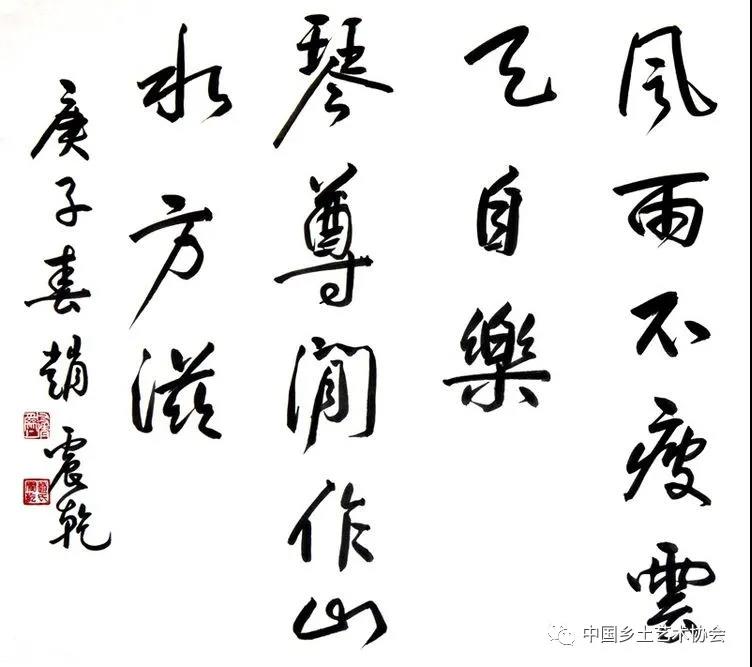 風雨不瘦雲
天自樂
琴尊閒作山
水方滋
庚子春趙震乾
中国乡土艺术协会